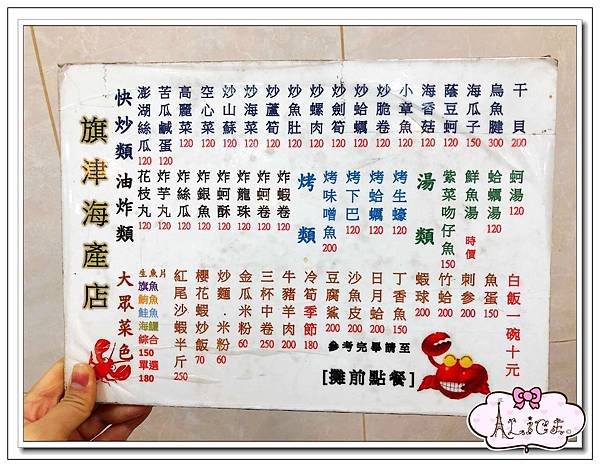 旗津海產店
快炒類
澎湖絲瓜 120
苦瓜鹹蛋 120
高麗菜 120
空心菜 120
炒山蘇 120
炒海菜 120
炒蘆筍 120
炒魚肚 120
炒螺肉 120
炒劍筍 120
炒蛤蠣 120
炒脆卷 120
小章魚 120
海香菇 120
蔭豆蚵 120
海瓜子 150
烏魚腱 300
干貝 200
油炸類
花枝丸 120
炸芋丸 120
炸絲瓜 120
炸銀魚 120
炸蚵酥 120
炸龍珠 120
炸蚵卷 120
炸蝦卷 120
烤類
烤味噌魚 200
烤下巴 120
烤蛤蠣 120
烤生蠔 120
湯類
紫菜吻仔魚 150
鮮魚湯 時價
蛤蠣湯 120
蚵湯 120
大眾菜色
生魚片
旗魚
鮪魚
鮭魚
海鱺
綜合
150
單選
180
紅尾沙蝦半斤 250
櫻花蝦炒飯 70
炒麵.米粉 60
金瓜米粉 60
三杯中卷 250
牛豬羊肉 200
冷筍季節 180
豆腐鯊 200
沙魚皮 200
日月蛤 200
丁香魚 150
蝦球 200
竹蛤 200
刺參 200
魚蛋 150
白飯一碗十元
參考完畢請至
[攤前點餐]
ALiCE.